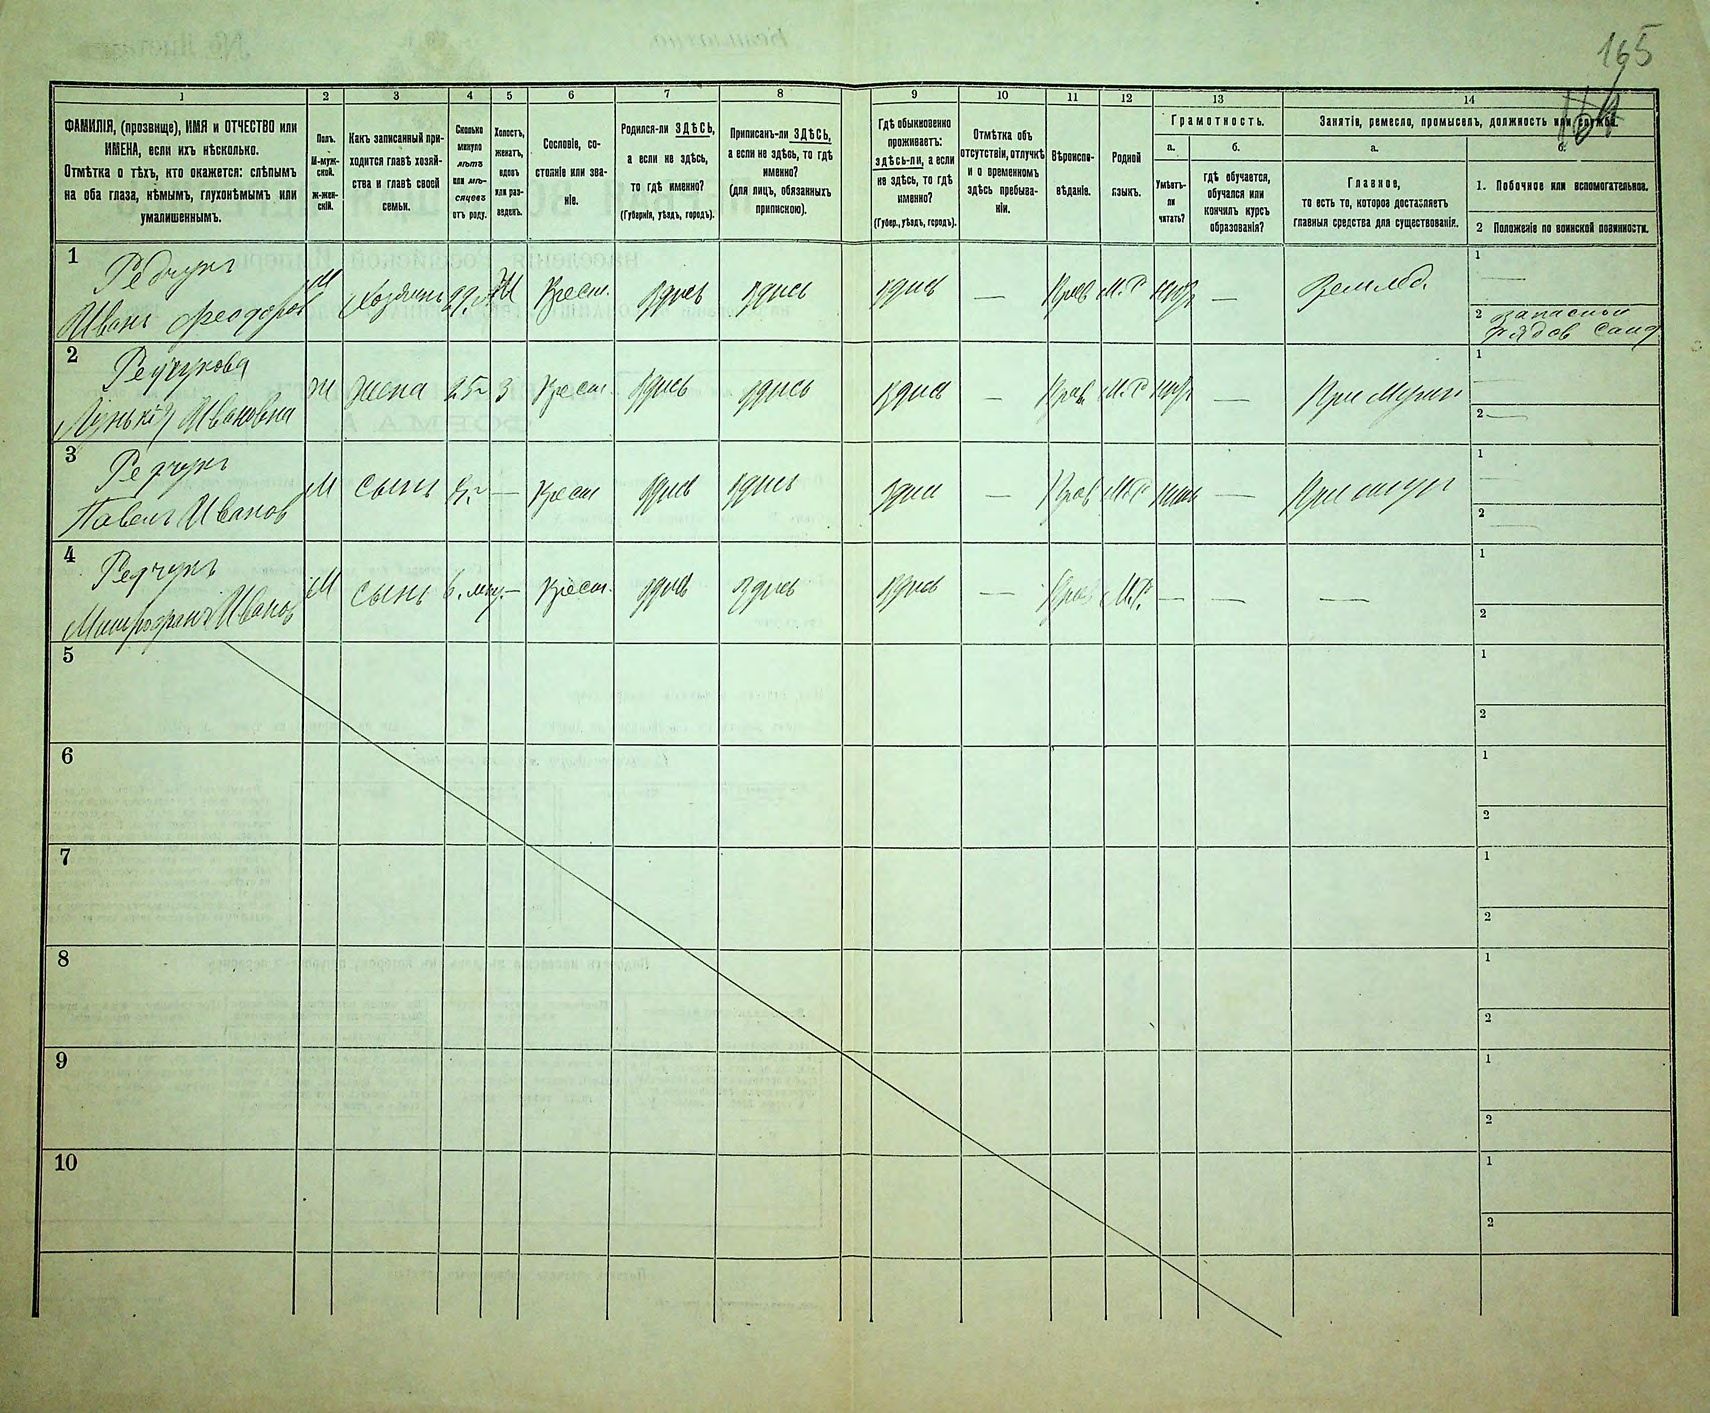 165
1 2 3 4 5 6 7 8 9 10 11 12 13 14
ФАМИЛІЯ, (прозвище), ИМЯ и ОТЧЕСТВО или
ИМЕНА, если ихъ нѣсколько.
Отмѣтка о тѣхъ, кто окажется: слѣпымъ
на оба глаза, нѣмымъ, глухонѣмымъ или
умалишеннымъ.
Полъ.
М-муж-
ской.
ж-жен-
скій.
Какъ записанный при-
ходится главѣ хозяй-
ства и главѣ своей
семьи.
Сколько
минуло
лѣтъ
или мѣ-
сяцевъ
отъ роду.
Холостъ,
женатъ,
вдовъ
или раз-
веденъ.
Сословіе, со-
стояніе или зва-
ніе.
Родился-ли ЗДѢСЬ,
а если не здѣсь,
то гдѣ именно?
(Губернія, уѣздъ, городъ).
Приписанъ-ли ЗДѢСЬ,
а если не здѣсь, то гдѣ
именно?
(для лицъ, обязанныхъ
припискою).
Гдѣ обыкновенно
проживаетъ:
здѣсь-ли, а если
не здѣсь, то гдѣ
именно?
(Губер., уѣздъ, городъ).
Отмѣтка объ
отсутствіи, отлучкѣ
и о временномъ
здѣсь пребыва-
ніи.
Вѣроиспо-
вѣданіе.
Родной
языкъ.
Грамотность.
а.
Умѣетъ-
ли
читать?
б.
гдѣ обучается,
обучался или
кончилъ курсъ
образованія?
Занятіе, ремесло, промыселъ, должность или служба.
а.
Главное,
то есть то, которое доставляетъ
главныя средства для существованія.
б.
1. Побочное или вспомогательное.
2 Положеніе по воинской повинности.
1
Иванъ Феодоровъ М Хозяинъ Крест. здѣсь здѣсь здѣсь — Прав М.Р — Землед.
1 —
2 запасной
рядов
2
Ивановна Ж жена 25 З Крест. здѣсь здѣсь здѣсь — Прав. М.Р — При мужи
1 —
2 —
3
Павелъ Ивановъ М сынъ — Крест здѣсь здѣсь здѣсь — Прав М.Р — При отцу
1 —
2 —
4
Митрофанъ Ивановъ М сынъ 6. мц. — Крест. здѣсь здѣсь здѣсь — Прав М.Р. — — —
1
2
5
1
2
6
1
2
7
1
2
8
1
2
9
1
2
10
1
2